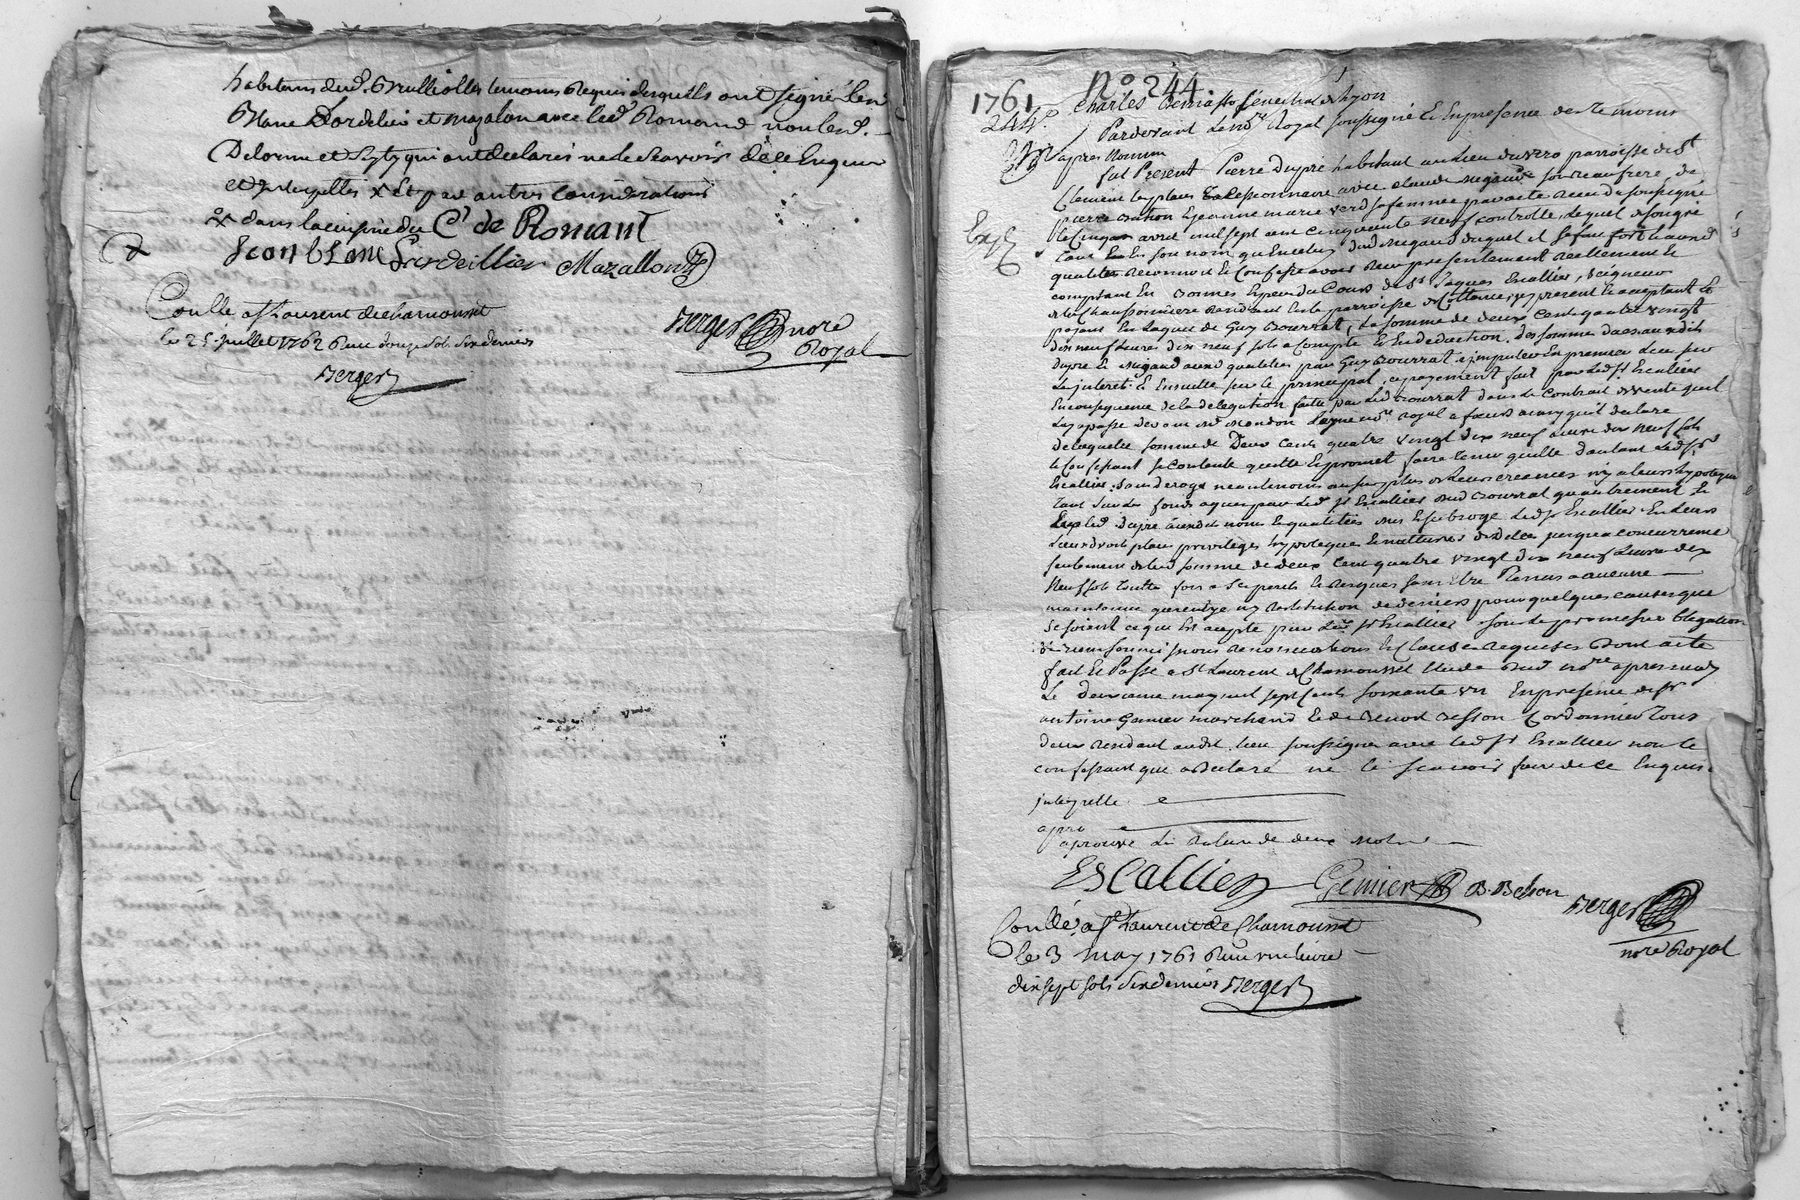 habitans dud. Brulliolles temoins Requis lesquels ont signé led
Blanc Dordelier et mazalon avec led. Romand non led.
Delorme et qui ont declaré ne le Scavoir de ce Enquis
et Interpellés x Et par autres Considerations
x dans la Cr de Romant
Jean blanc Mazallon
Conllé a St Laurent de chamousset
le 25 juillet 1762 Reçu douze sols six deniers
Berger
Berger nore
Royal
1761 No 244.
Charles Senechal de lyon
244e.
Pardevant Le nore Royal soussigné Et En presence des Temoins
apres Nommés
fut Present Pierre dupré habitant au Lieu du parroisse de St
Clement les places Cessionnaire avec claude Migaud son beaufrere, de
pierre Et jeanne marie sa femme par acte Recu du soussigné
le Cinq avril mil sept cent cinquante neuf controllé, Lequel de son gré
tant En son nom qu'En celuy dud Migaud duquel il se fait fort aux d
qualités Reconnoit Et Confesse avoir Reçu presentement Reellement Et
comptant En bonnes Especes du Cours de Sr Jaques Escallier, Seigneur
de la Chaussonniere Residant En la parroisse de present Et acceptant Et
payant En l'aquit de Guy Bourrat, La somme de deux Cent quatre vingt
dix neuf Livres dix neuf sols a Compte Et En deduction des sommes dues audit
dupré Et Migaud auxd qualités par Guy Bourrat a imputer En premier Lieu sur
Les interets Et Ensuitte sur le principal, ce payement fait par Led Sr Escallier
En consequence de la delegation faitte par Led Bourrat dans Le Contrat de Vente quil
Luy a passé devant Me Mondon Royal a feurs ainsy qu'il declare
de laquelle somme de Deux Cent quatre Vingt dix neuf Livres dix neuf sols
le Confessant se Contente quitte Et promet faire tenir quitte d'autant Led Sr
Escallier, Sans deroger neantmoins au surplus de leurs creances ny a leurs hypoteques
tant sur les fonds aquis par Led Sr Escallier dud Bourrat qu'autrement Et
led dupré aux dits noms Et qualitées met Et subroge Led Sr Escallier En Leurs
Lieu droit place privileges hypoteque Et natture de dela jusqu'a concurrence
seulement de lad somme de deux Cent quatre vingt dix neuf Livres dix
Neuf sols toutte fois a Ses perils Et Risques sans Etre Tenus a aucune
maintenue garentye ny Restitution de deniers pour quelques causes que
se soient ce qui Est accepté par Led Sr Escallier sous Les promesses obligation
soumissions Renonciations Et Clauses Requises dont acte
fait Et Passé a St Laurent de Chamousset Etude dud nore apres midy
Le deuxieme may mil sept Cents soixante un En presence de Sr
antoine Genier marchand Et de Benoit Besson Cordonnier Tous
deux Residant audit lieu soussignés avec led Sr Escallier non le
confessant qui a declaré ne le scavoir faire de ce Enquis
interpellé
appro
aprouvé La Rature de deux Mots
Escallier Genier B. Besson Berger
nore Royal
Conllé a St Laurent de Chamousset
le 3 may 1761 Reçu un Livre
dix sept sols six deniers Berger